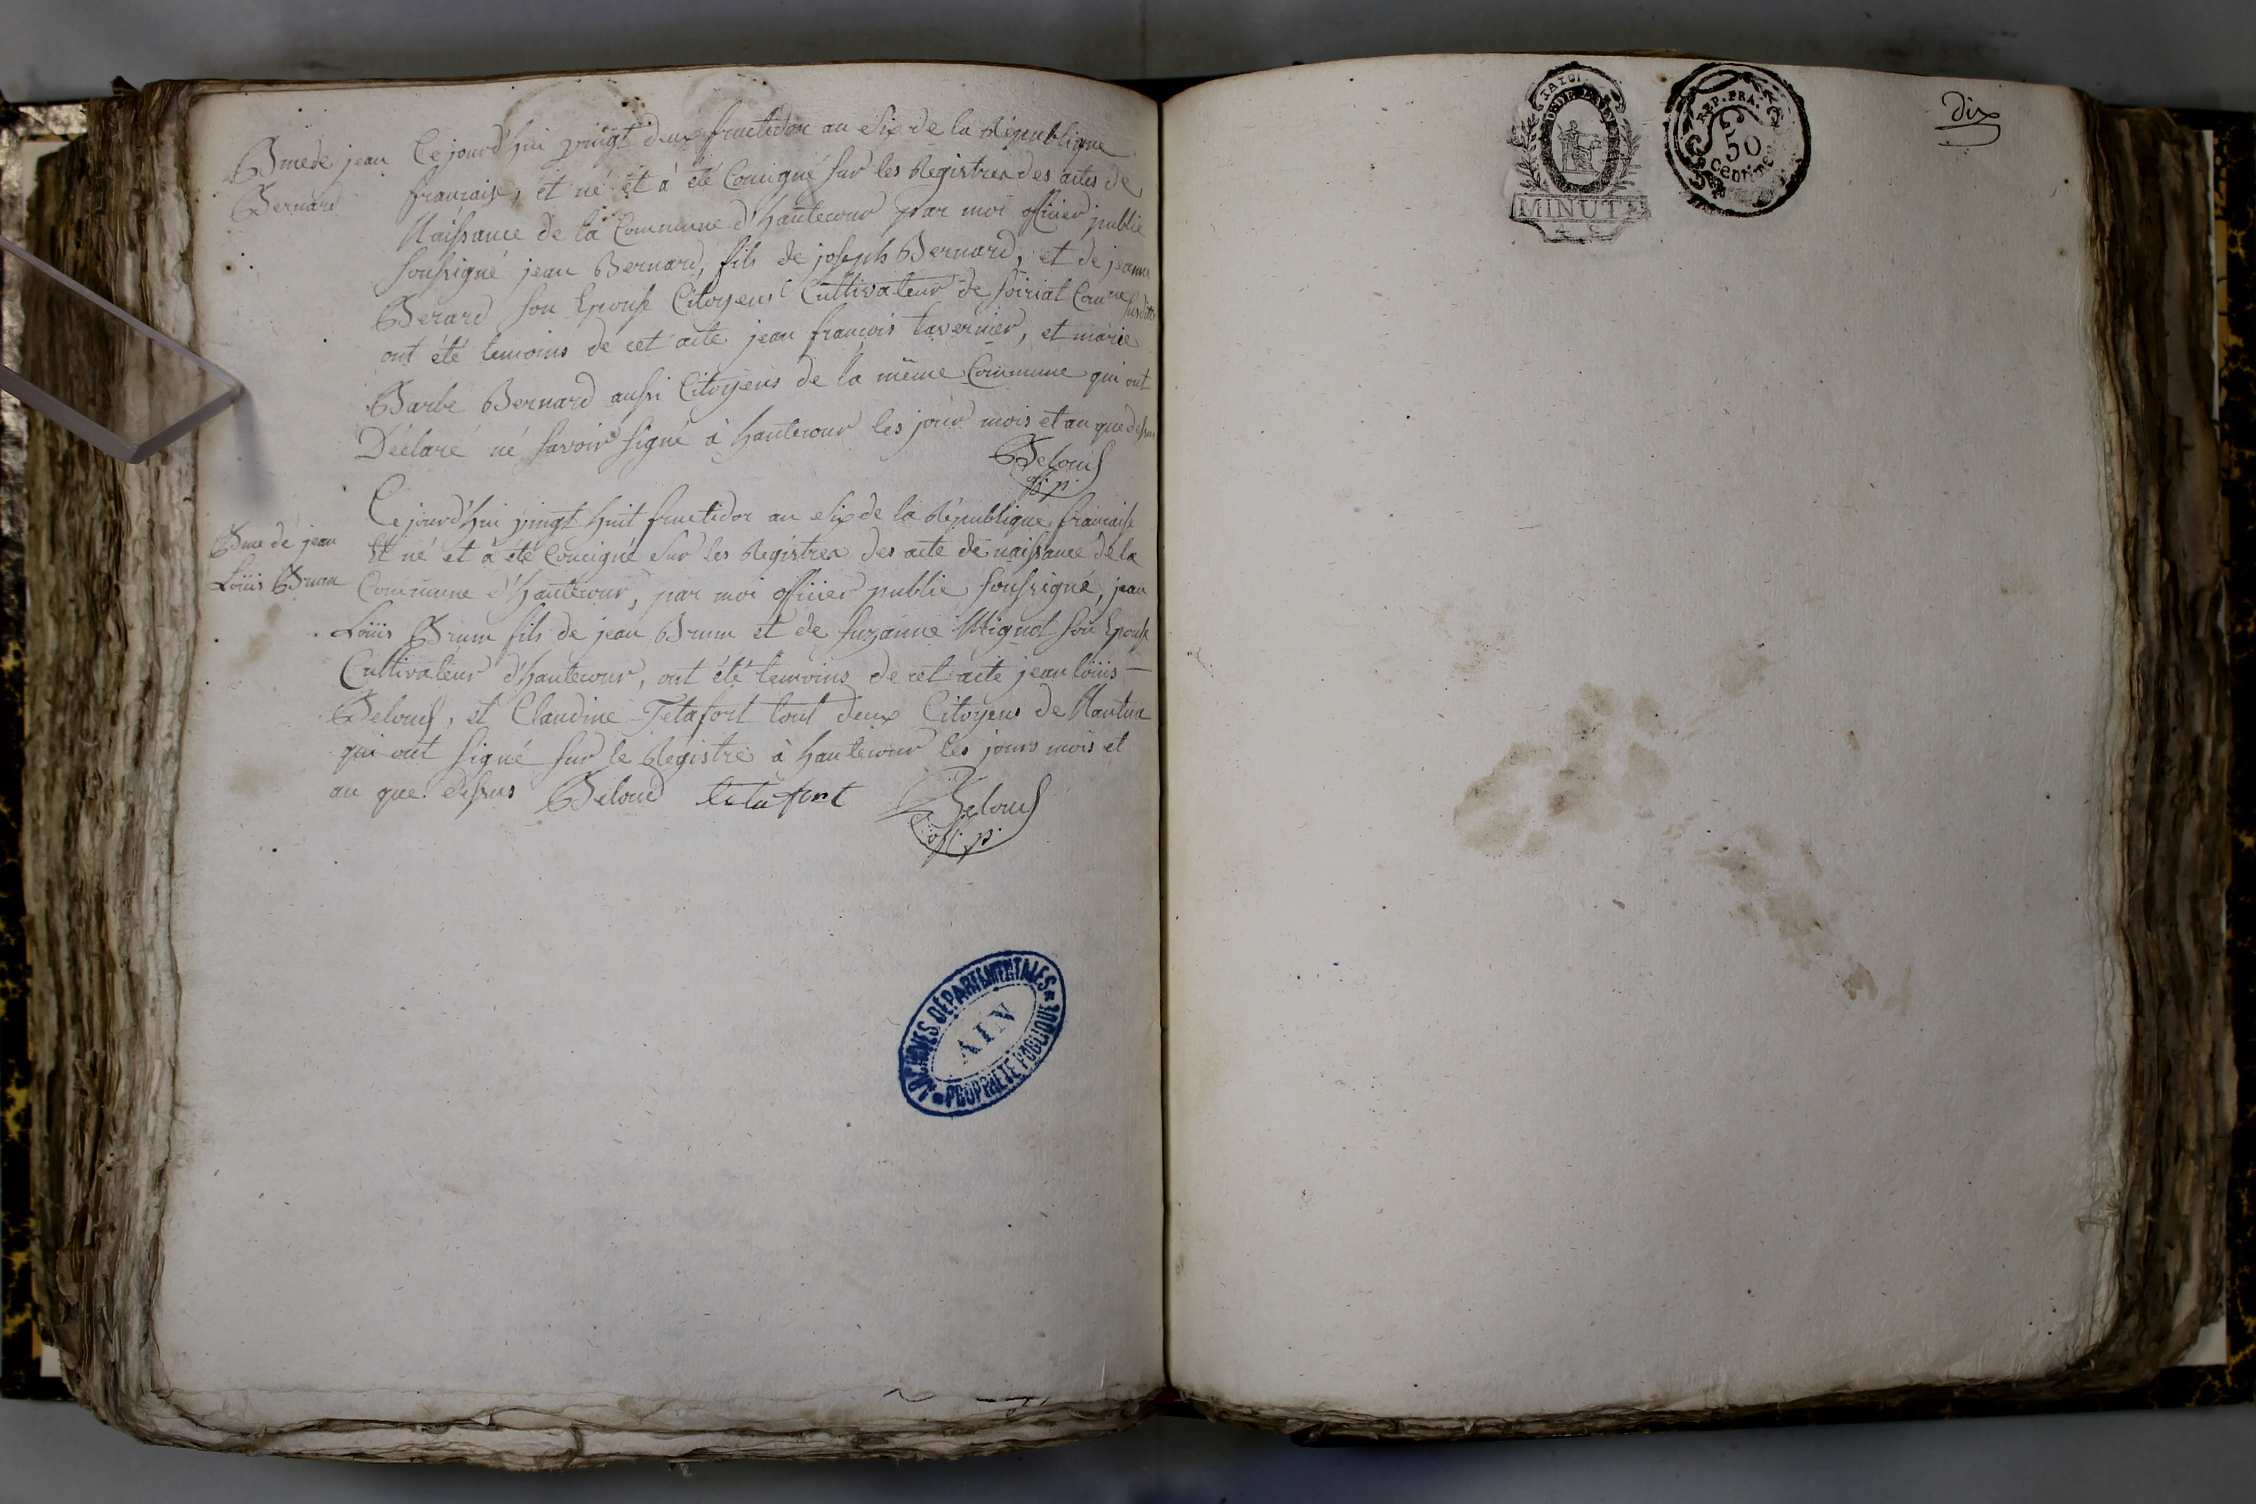 Bme de jean
Bernard
Ce jourd'hui vingt deux fructidor an Six de la République
francaise, Et né et à été Concigné sur les Registres des actes de
Naissance de la Commune d'hautecour par moi officier public
Soussigné jean Bernard, fils de joseph Bernard, et de jeanne
Berard son Epouse Citoyens Cultivateur de soiriat Comne susditte
ont été temoins de cet acte jean francois tavernier, et marie
Barbe Bernard aussi Citoyens de la même Commune qui ont
Déclaré né savoir signé à hautecour les jour mois et an que dessus
Belouf
off. p.
Bme de jean
Loüis Brum
Ce jourd'hui vingt huit fructidor an Six de la République francaise
Et né et à été Concigné sur les Registres des acte de naissance de la
Commune d'hautecour, par moi officier public Soussigné, jean
Loüis Brum fils de jean Brum et de suzanne Mignot son Epouse
Cultivateur d'hautecour, ont été temoins de cet acte jean loüis
Belouf, et Claudine Tetafort tout deux Citoyens de Nantua
qui ont signé sur le Registre à hautecour les jours mois et
an que dessus Beloud tetafort Belouf
off. p.
ARCHIVES DÉPARTEMENTALES
AIN
PROPRIÉTÉ PUBLIQUE
MINUTE
REP. FRA.
50
Centimes
dix